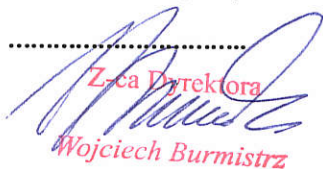 Z-ca Dyrektora
Wojciech Burmistrz